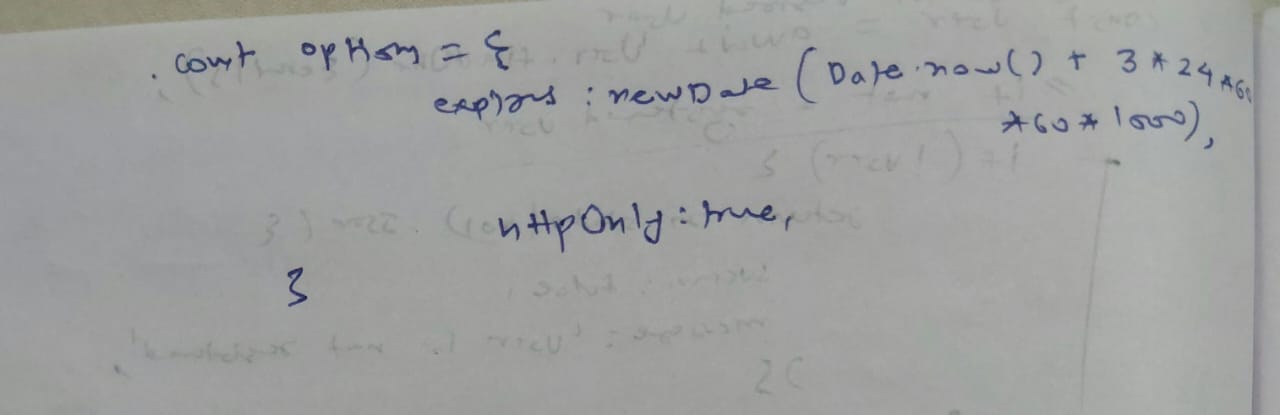 const options = {
expires : new Date ( Date.now() + 3 * 24 * 60
* 60 * 1000),
httpOnly : true,
}